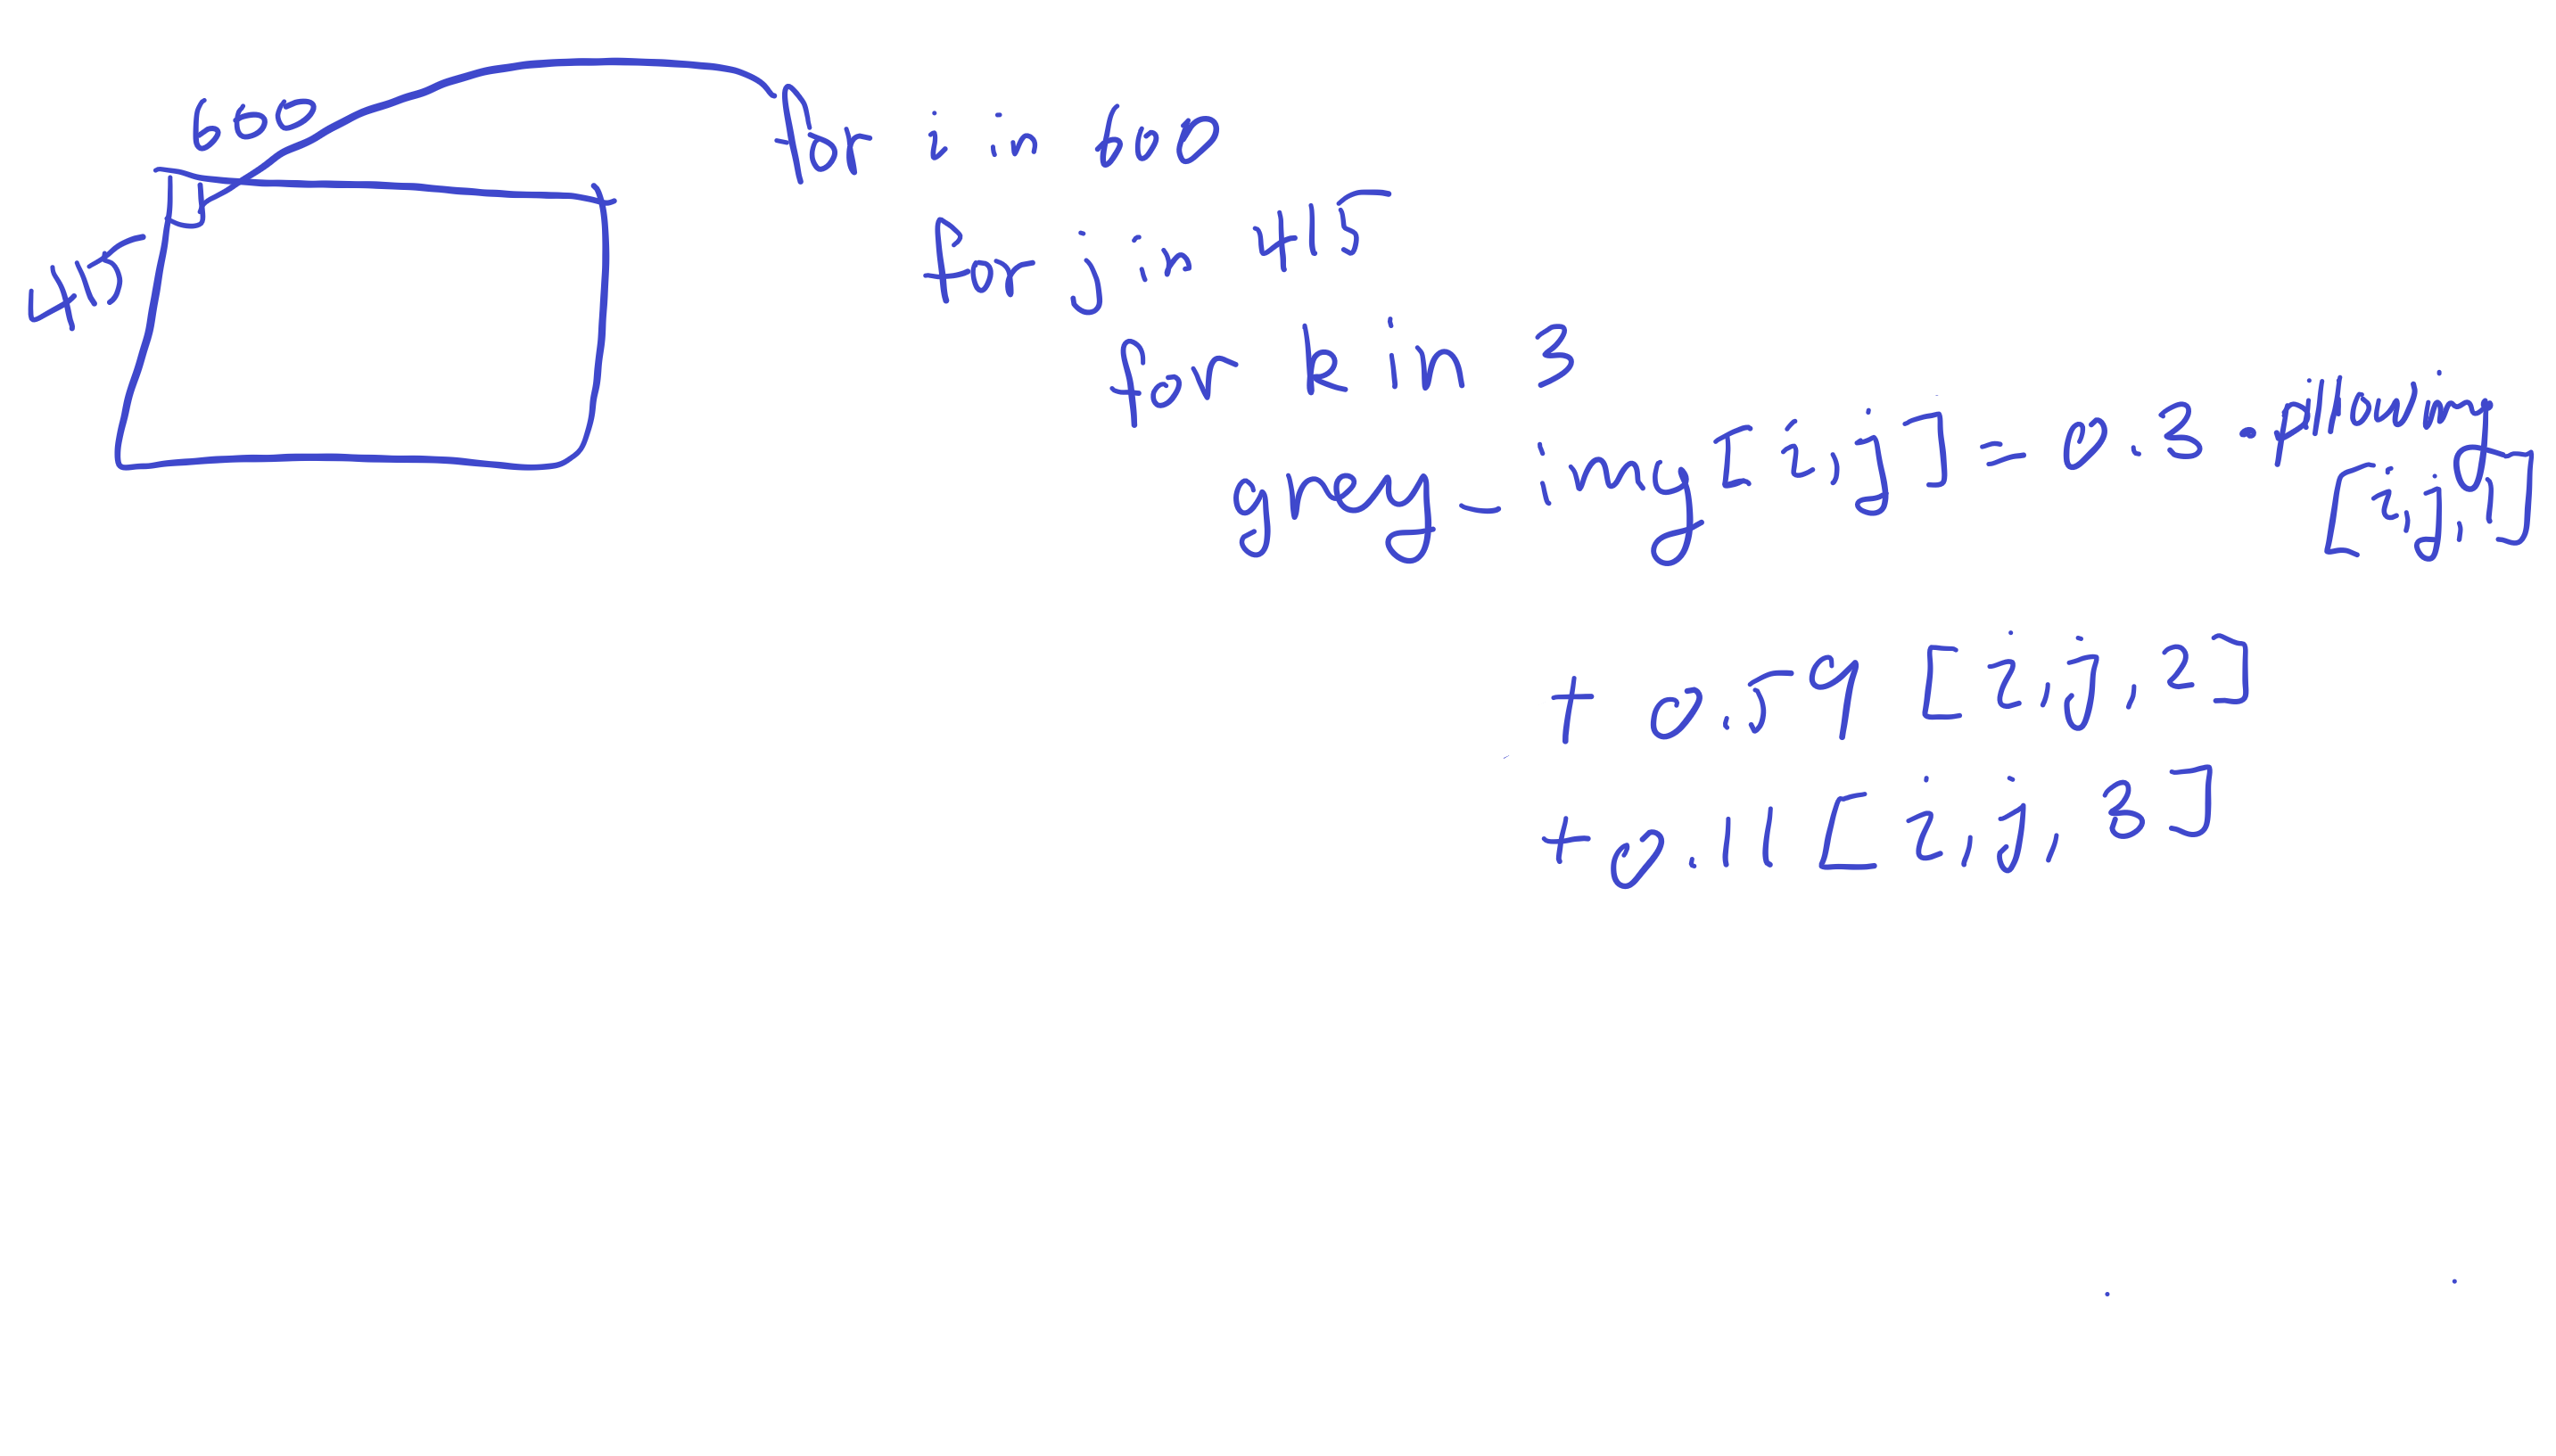 600
415
for i in 600
for j in 415
for k in 3
grey_img[i,j] = 0.3 · pillowimg
[i,j,1]
+ 0.59 [i,j,2]
+ 0.11 [i,j,3]